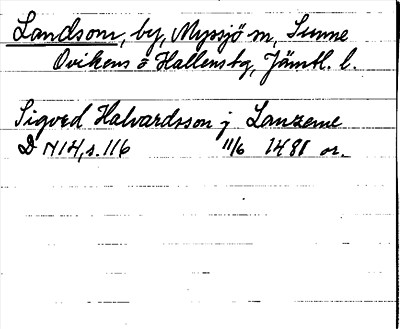 Landsom, by, Myssjö sn, Sunne
Ovikens o Hallens tg, Jämtl. l.
Sigvrd Halvardsson j Lanzeme
D N14, s. 116 11/6 1481 or.